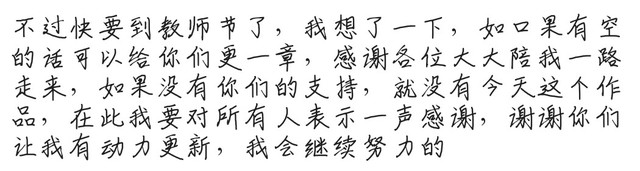 不过快要到教师节了，我想了一下，如口果有空
的话可以给你们更一章，感谢各位大大陪我一路
走来，如果没有你们的支持，就没有今天这个作
品，在此我要对所有人表示一声感谢，谢谢你们
让我有动力更新，我会继续努力的